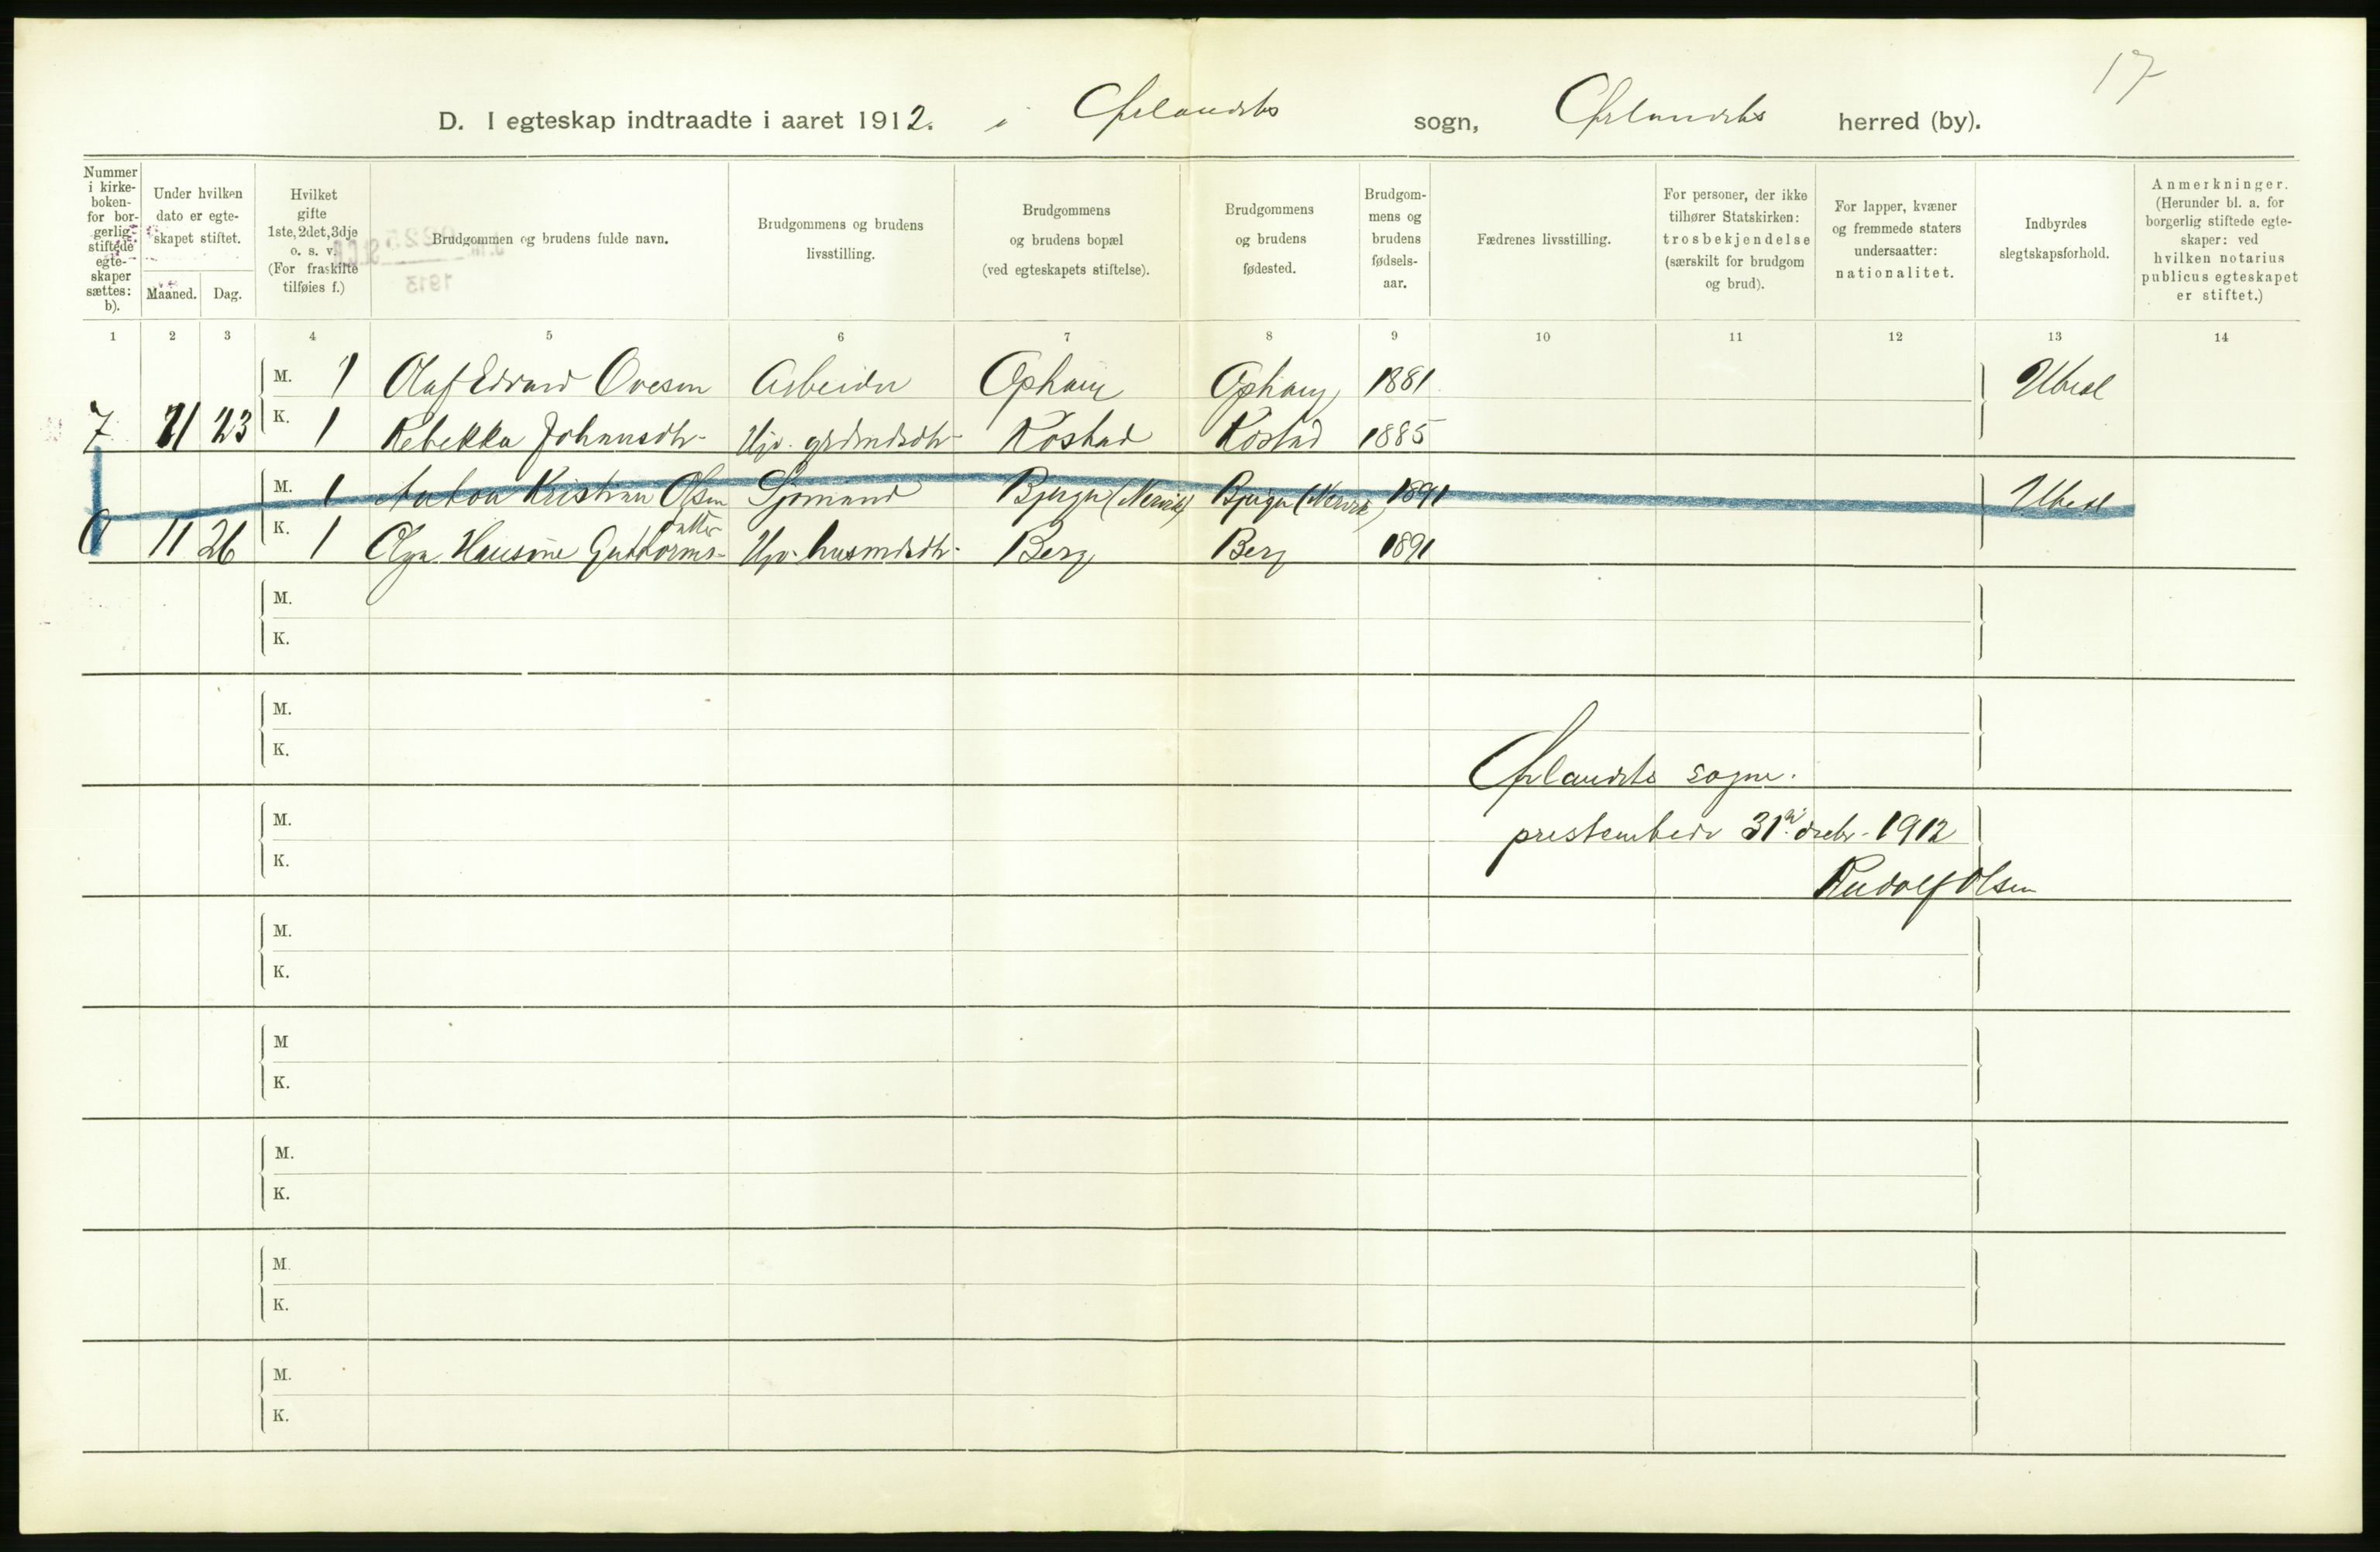 17
D. I egteskap indtraadte i aaret 1912. i Ørlandets sogn, Ørlandets herred (by).
Nummer i kirkeboken- for borgerlig stiftede egteskaper sættes: b).
Under hvilken dato er egteskapet stiftet.
Maaned. Dag.
Hvilket gifte 1ste, 2det, 3dje o. s. v. (For fraskilte tilføies f.)
Brudgommen og brudens fulde navn.
Brudgommens og brudens livsstilling.
Brudgommens og brudens bopæl (ved egteskapets stiftelse).
Brudgommens og brudens fødested.
Brudgommens og brudens fødselsaar.
Fædrenes livsstilling.
For personer, der ikke tilhører Statskirken: trosbekjendelse (særskilt for brudgom og brud).
For lapper, kvæner og fremmede staters undersaatter: nationalitet.
Indbyrdes slegtskapsforhold.
Anmerkninger. (Herunder bl. a. for borgerlig stiftede egteskaper: ved hvilken notarius publicus egteskapet er stiftet.)
1 2 3 4 5 6 7 8 9 10 11 12 13 14
M. 1 Olaf Edvard Ovesen Arbeider Ophaug Ophaug 1881 Ubesl
7 11 23 K. 1 Rebekka Johannsdtr. Ugv. grdmdsdtr. Rostad Rostad 1885
M. 1 Anton Kristian Olsen Sjømand Bjugn (Nervik) Bjugn (Nervik) 1891 Ubesl
11 26 K. 1 Olga Hansine Guttormsdatter Ugv. husmdsdtr. Berg Berg 1891
M.
K.
M.
K.
Ørlandets sogne-
M.
prestembede 31te decbr. 1912
K.
Rudolf Olsen
M.
K.
M
K.
M.
K.
M.
K.
M.
K.